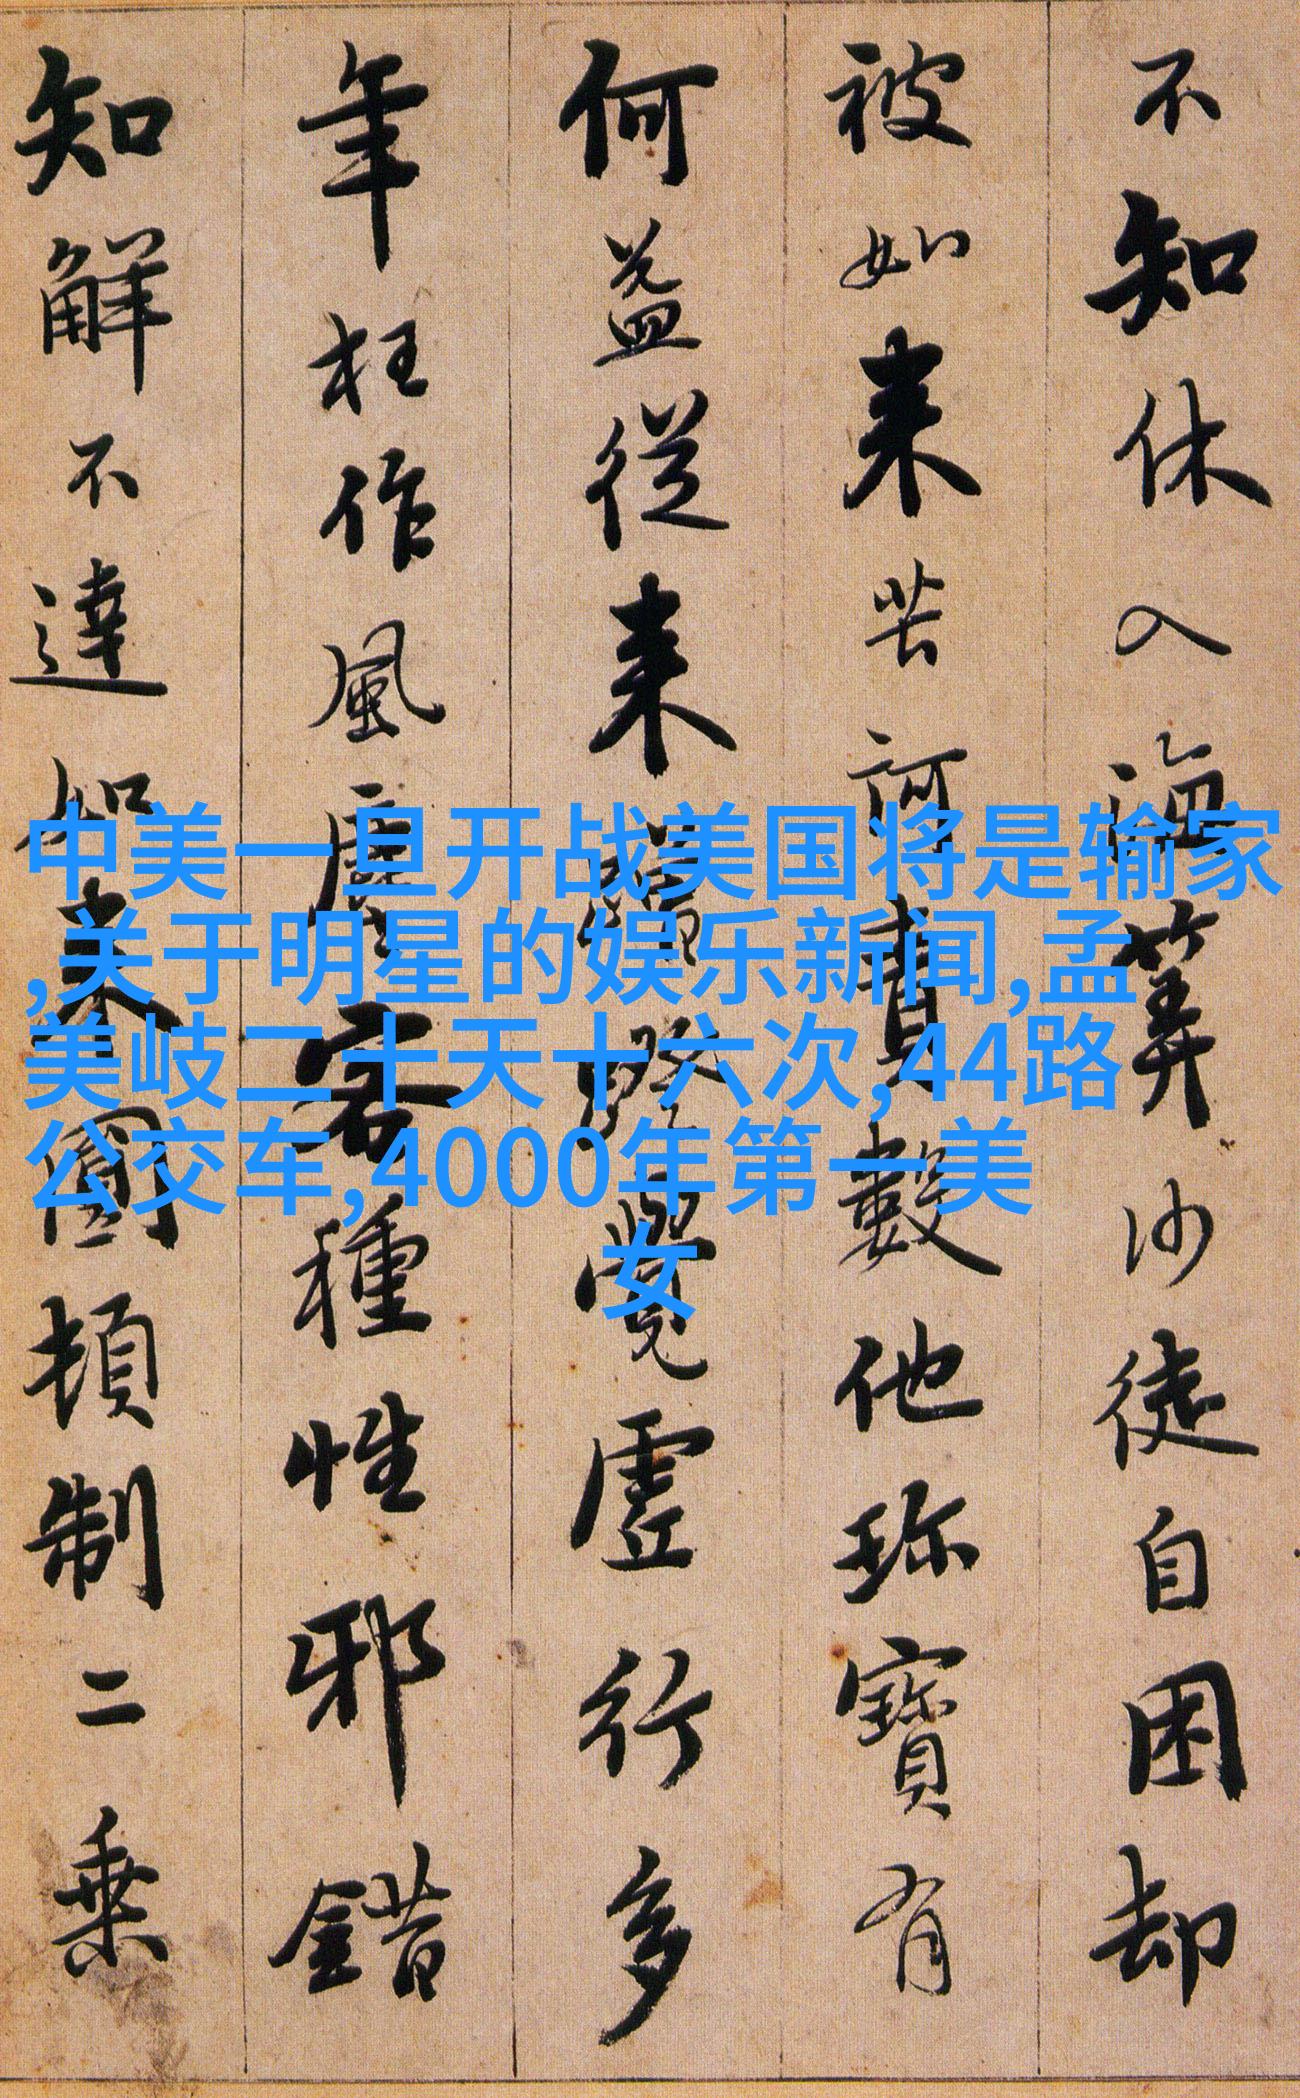 不知休入海算沙徒自困却
被如来苦訶責數他珎寶有
何益從来蹭蹬覺虛行多
年枉作風塵客種性邪錯
知解不達如来圓頓制二乗
中美一旦开战美国将是输家
,关于明星的娱乐新闻,孟
美岐二十天十六次,44路
公交车,4000年第一美
女